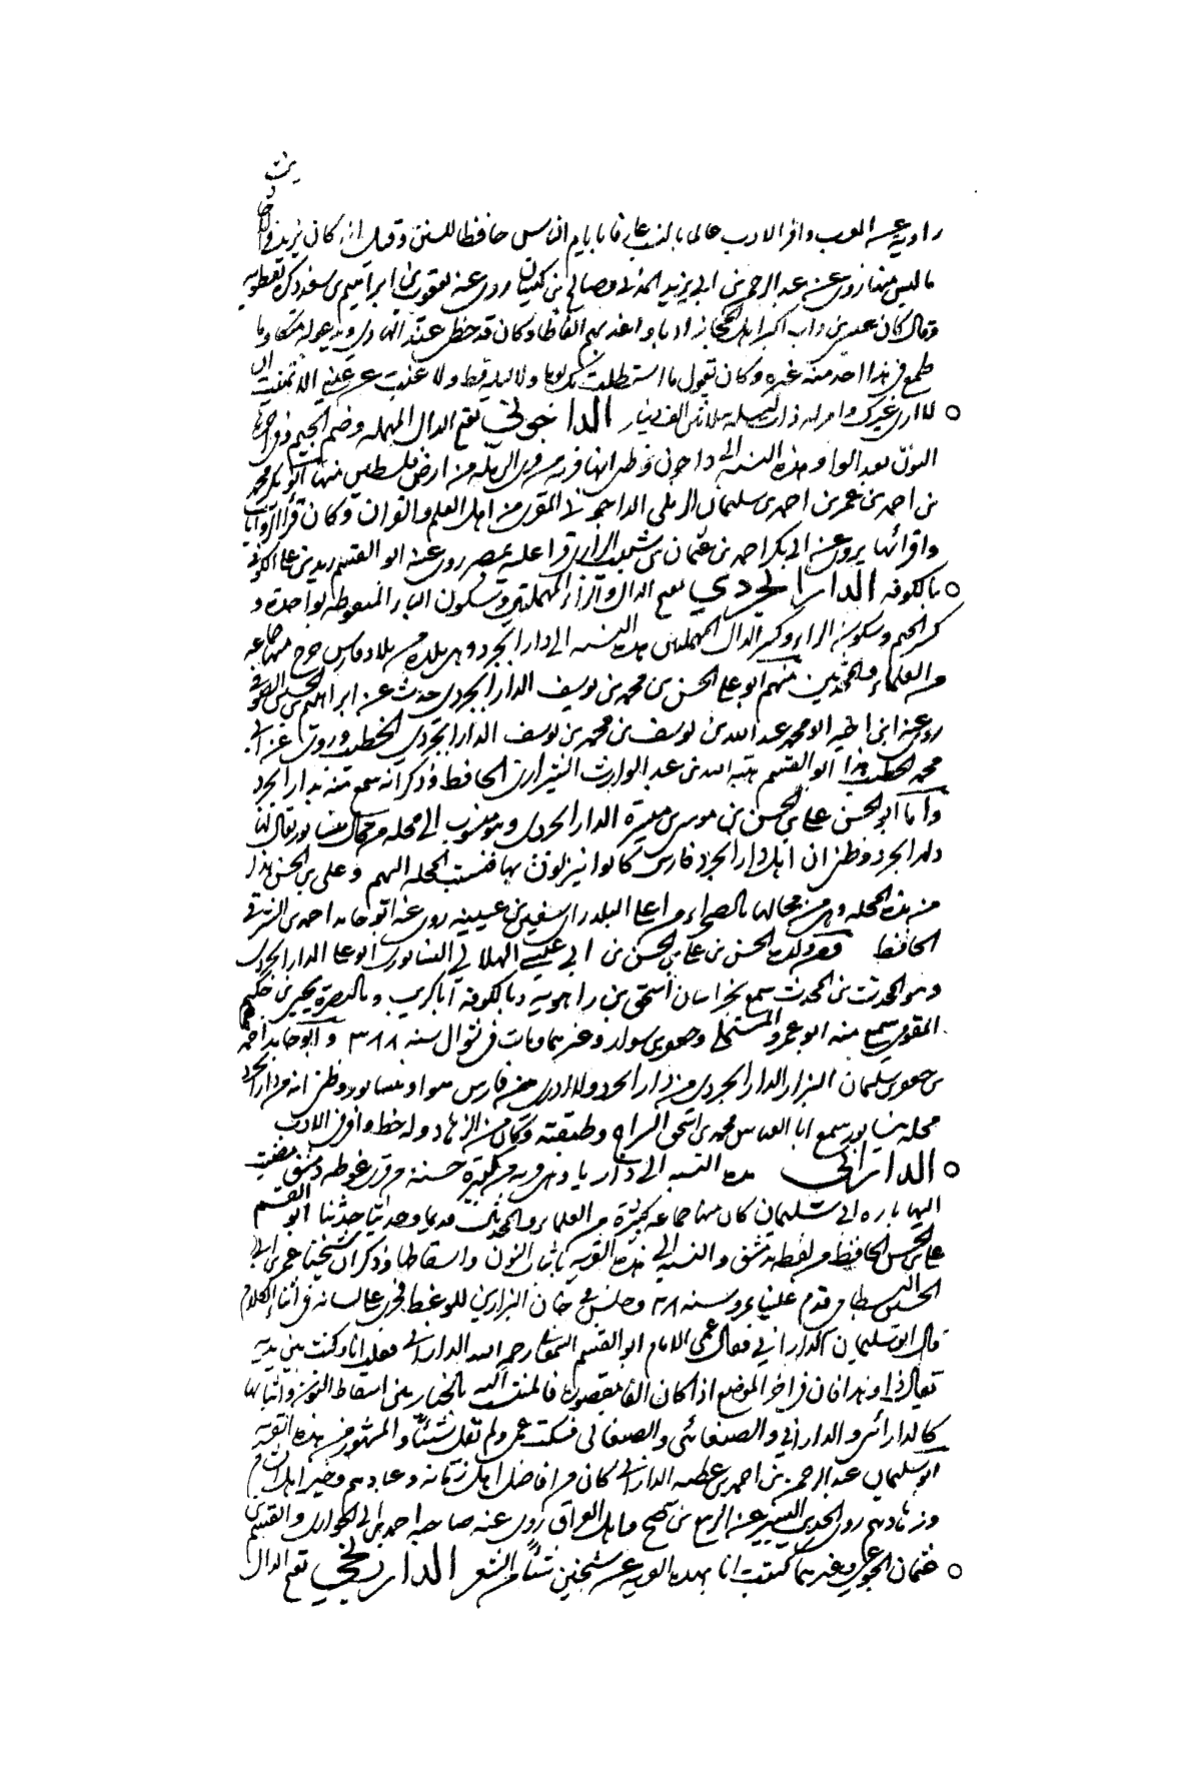 راوية عن العرب وافر الادب عالما بالنسب عارفا بايام الناس حافظا للسنن وقيل انه كان يزيد في الاحاديث
ما ليس منها روى عن عبد الرحمن بن ابي يزيد المدني وصالح بن كيسان روى عنه يعقوب بن ابراهيم بن سعد ذكره نفطويه
وقال كان عيسى بن داب اكثر اهل الحجاز ادبا واعذبهم الفاظا وكان قد حظى عند الهادي ويدعو له متكا وما
طمع في هذا احد منه غيره وكان يقول ما استطلت بك يوما ولا ليلة قط ولا غبت عن عيني الا تمنيت ان
لا ارى غيرك وامر له ذات ليلة بثلاثين الف دينار الداجوني بفتح الدال المهملة وضم الجيم وفي اخرها
النون بعد الواو هذه النسبة الى داجون وظني انها قرية من قرى الرملة من ارض فلسطين منها ابو بكر محمد
بن احمد بن عمر بن احمد بن سليمان الرملي الداجوني المقرى من اهل العلم والقران وكان قرا الروايات
واقرائها يروى عن ابي بكر احمد بن عثمان بن شبيب الرازي قرا عليه بمصر روى عنه ابو القسم زيد بن علي الكوفي
بالكوفه الدارابجردي بفتح الدال والراء المهملتين وسكون الباء المنقوطة بواحدة و
كسر الجيم وسكون الراء وكسر الدال المهملتين هذه النسبه الى دارابجرد وهي بلدة من بلاد فارس خرج منها جماعة
من العلماء والمحدثين منهم ابو علي الحسن بن محمد بن يوسف الدارابجردي حدث عن ابراهيم بن الحسين الصوفي
روى عنه ابن اخيه ابو محمد عبد الله بن يوسف بن محمد بن يوسف الدارابجردي الخطيب وروى عن ابي
محمد الخطيب هذا ابو القسم هبة الله بن عبد الوارث الشيرازي الحافظ وذكر انه سمع منه بدارابجرد
واما ابو الحسن علي بن الحسن بن موسى بن ميسرة الدارابجردي وهو منسوب الى محلة من محال نيسابور يقال لها
دارابجرد وظني ان اهل دارابجرد فارس كانوا ينزلون بها فنسبت المحلة اليهم وعلي بن الحسن هذا
من هذه المحلة وهي من محالها بالصحراء من اعلى البلد راى سفين بن عيينه روى عنه ابو حامد احمد بن الشرقي
الحافظ وولده الحسن بن علي بن الحسن بن ابي عيسى الهلالي النيسابوري ابو علي الدارابجردي
وهو المحدث بن المحدث سمع بخراسان اسحق بن راهويه وبالكوفه ابا كريب وبالبصرة يحيى بن حكيم
المقوم سمع منه ابو عمرو المستملي وجعفر بن سوار وغيرهما ومات في شوال سنه ٢٨٨ وابو حامد احمد
بن جعفر بن سليمان البزار الدارابجردي من دارابجرد ولا ادري هي فارس هو او نيسابور وظني انه من دارابجرد
محلة نيسابور سمع ابا العباس محمد بن اسحق السراج وطبقته وكان من الزهاد وله خط وافر في الادب
الداراني هذه النسبه الى داريا وهي قريه كبيرة حسنة من قرى غوطه دمشق مضيت
اليها لزيارة ابي سليمان كان منها جماعه كثيرة من العلماء والمحدثين قديما وحديثا حدثنا ابو القسم
علي بن الحسن الحافظ من لفظه بدمشق والنسبه الى هذه القريه باثبات النون واسقاطها وذكر ان شيخنا عمر بن ابي
الحسن البسطامي قدم علينا مرو سنه وجلس في خان البزازين للوعظ فجرى على لسانه في اثناء الكلام
قال ابو سليمان الداراني فقال عمي الامام ابو القسم السمعاني رحمه الله الدارائي فعلا انا وكنت بين يديه
تعال ذا وهذا فان في اخر الموضع اذا كان الفا مقصورة فالمنتسب اليه بالخيار بين اسقاط النون واثباتها
كالدارائي والداراني والصنعائي والصنعاني فسكت عمر ولم يقل شيئا والمشهور من هذه القرية
ابو سليمان عبد الرحمن بن احمد بن عطيه الداراني كان من افاضل اهل زمانه وعبادهم وخير اهل الشام
وزهادهم روى الحديث اليسير عن الربيع بن صبيح واهل العراق روى عنه صاحبه احمد بن ابي الحواري والقسم بن
عثمان الجوعي وغيرهما كتبت انا بهذه القريه عن شيخين شيئا من الشعر الداربخي بفتح الدال